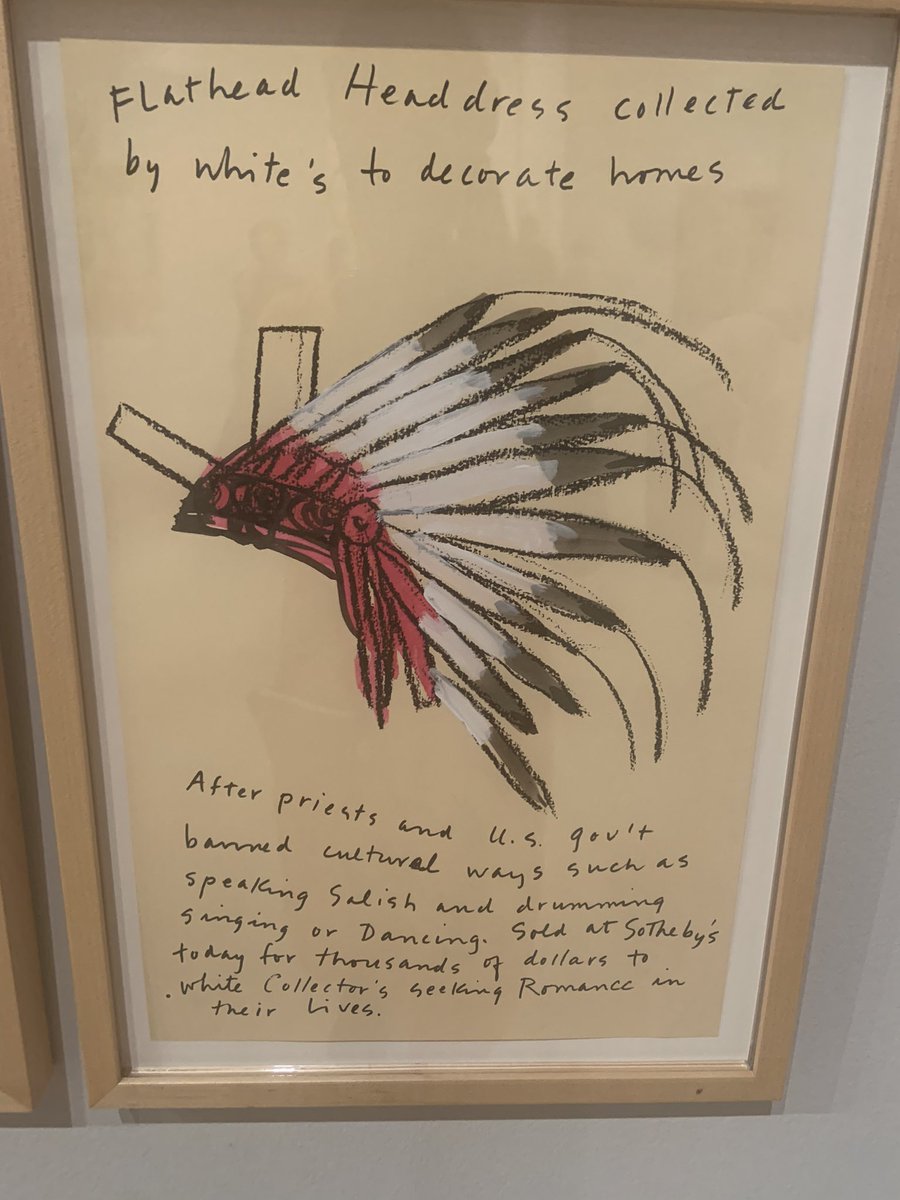 Flathead Headdress collected
by white's to decorate homes
After priests and U.S. gov't
banned cultural ways such as
speaking Salish and drumming
singing or Dancing. Sold at Sotheby's
today for thousands of dollars to
white Collector's seeking Romance in
their Lives.